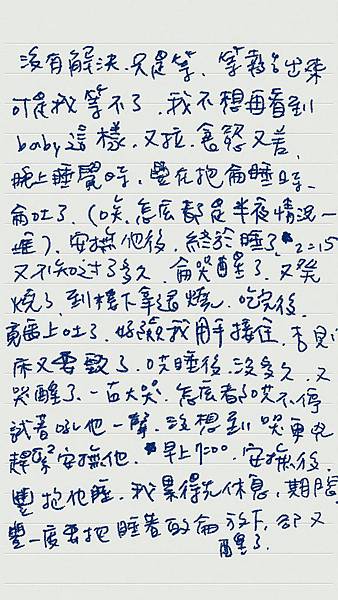 沒有解決.只是等、等報告出來
可是我等不了.我不想再看到
baby這樣.又拉.食慾又差.
晚上睡覺時.豐在抱侖睡時.
侖吐了.(唉.怎麼都是半夜情況一
堆).安撫他後.終於睡了 2=15
又不知過了多久.侖哭醒了.又發
燒了.到樓下拿退燒.吃完後.
馬上吐了.好險我用手接住.否則
床又要毀了.哄睡後.沒多久.又
哭醒了.一直大哭.怎麼都哄不停
試著吼他一聲.沒想到哭更兇
趕緊安撫他.早上7:00.安撫後.
豐抱他睡.我累得先休息.期間
豐一度要把睡著的侖放下.卻又
醒了.